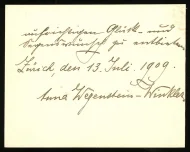 aufrichtigen Glück- und
Segenswünsche zu entbieten
Zürich, den 13. Juli. 1909.
Anna Wegenstein-Winkler